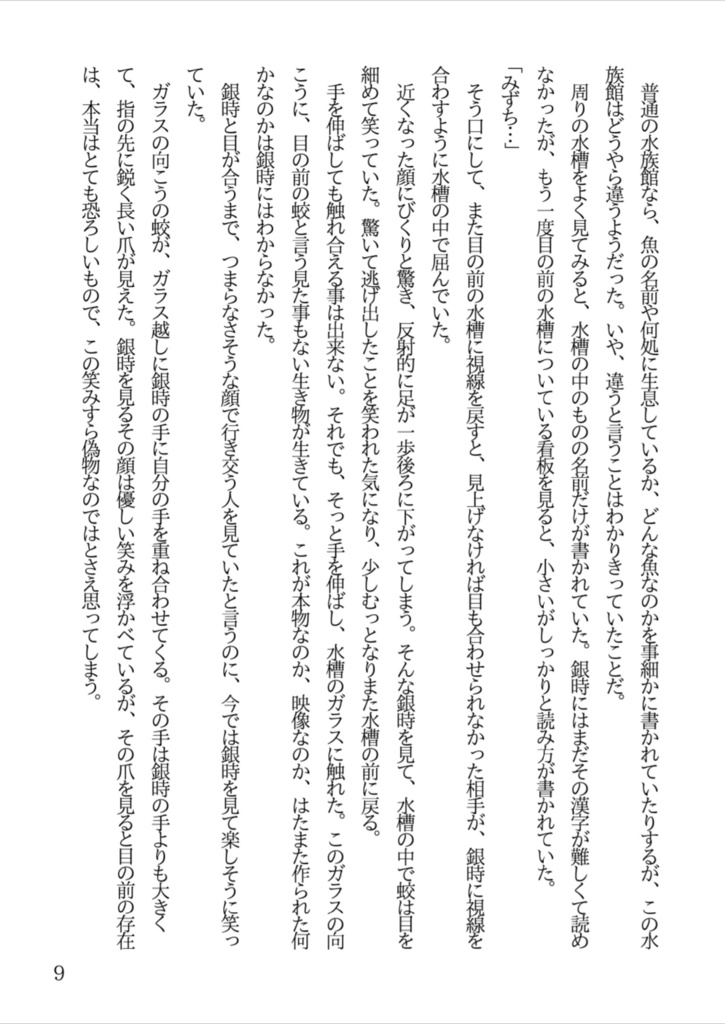 普通の水族館なら、魚の名前や何処に生息しているか、どんな魚なのかを事細かに書かれていたりするが、この水
族館はどうやら違うようだった。いや、違うと言うことはわかりきっていたことだ。
　周りの水槽をよく見てみると、水槽の中のものの名前だけが書かれていた。銀時にはまだその漢字が難しくて読め
なかったが、もう一度目の前の水槽についている看板を見ると、小さいがしっかりと読み方が書かれていた。
「みずち…」
　そう口にして、また目の前の水槽に視線を戻すと、見上げなければ目も合わせられなかった相手が、銀時に視線を
合わすように水槽の中で屈んでいた。
　近くなった顔にびくりと驚き、反射的に足が一歩後ろに下がってしまう。そんな銀時を見て、水槽の中で蛟は目を
細めて笑っていた。驚いて逃げ出したことを笑われた気になり、少しむっとなりまた水槽の前に戻る。
　手を伸ばしても触れ合える事は出来ない。それでも、そっと手を伸ばし、水槽のガラスに触れた。このガラスの向
こうに、目の前の蛟と言う見た事もない生き物が生きている。これが本物なのか、映像なのか、はたまた作られた何
かなのかは銀時にはわからなかった。
　銀時と目が合うまで、つまらなさそうな顔で行き交う人を見ていたと言うのに、今では銀時を見て楽しそうに笑っ
ていた。
　ガラスの向こうの蛟が、ガラス越しに銀時の手に自分の手を重ね合わせてくる。その手は銀時の手よりも大きく
て、指の先に鋭く長い爪が見えた。銀時を見るその顔は優しい笑みを浮かべているが、その爪を見ると目の前の存在
は、本当はとても恐ろしいもので、この笑みすら偽物なのではとさえ思ってしまう。
9